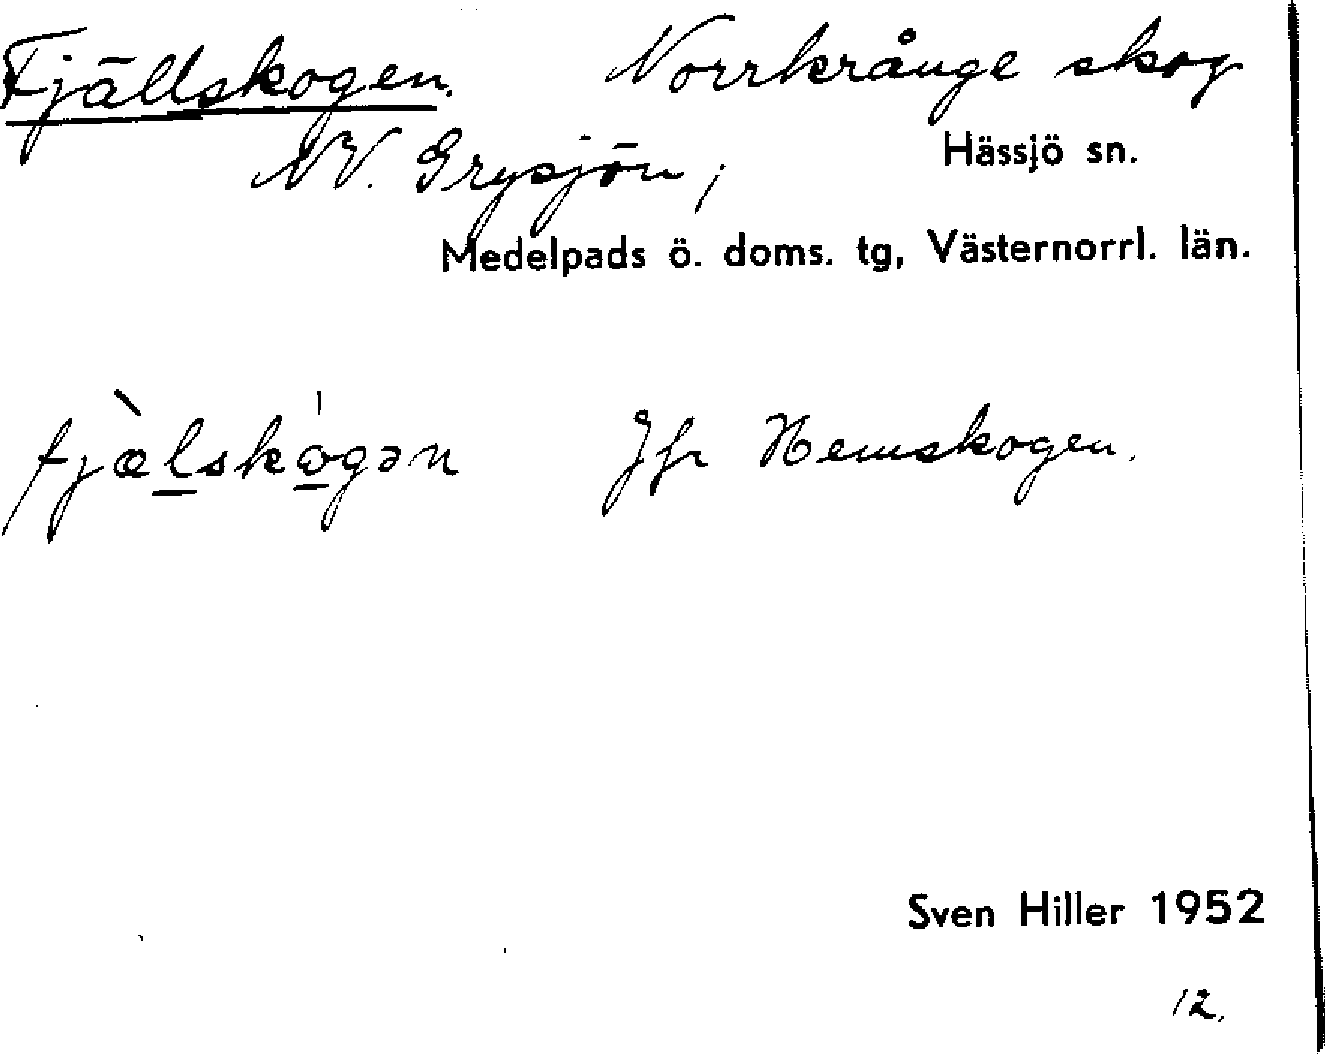 Fjällskogen. Norrkrånge skog
NV. Grysjön, Hässjö sn.
Medelpads ö. doms. tg, Västernorrl. län.
fjæ̀lskó̱gən Jfr Hemskogen.
Sven Hiller 1952
12.